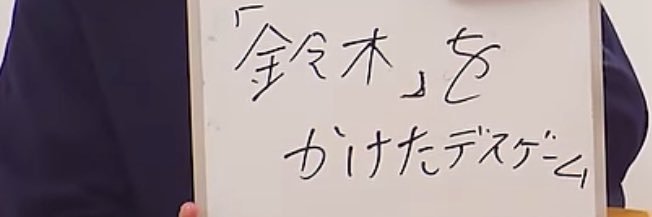 「鈴木」を
かけたデスゲーム